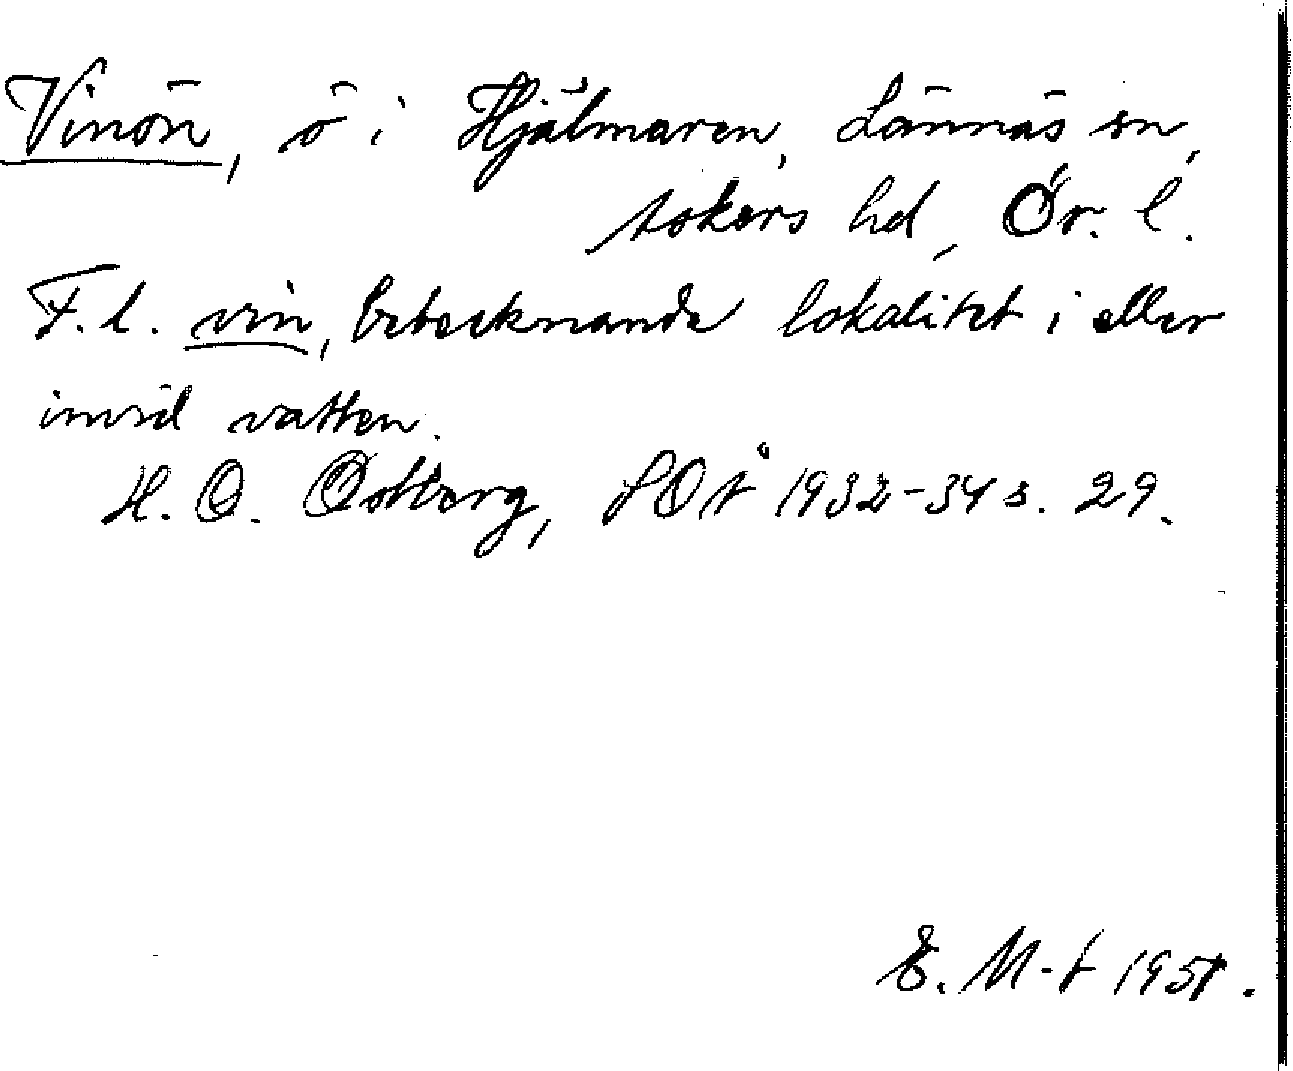 Vinön, ö i Hjälmaren, Lännäs sn,
Askers hd, Ör. l.
F.l. vin, betecknande lokalitet i eller
invid vatten.
H. O. Östberg, SOÅ 1932-34 s. 29.
E. M-t 1951.